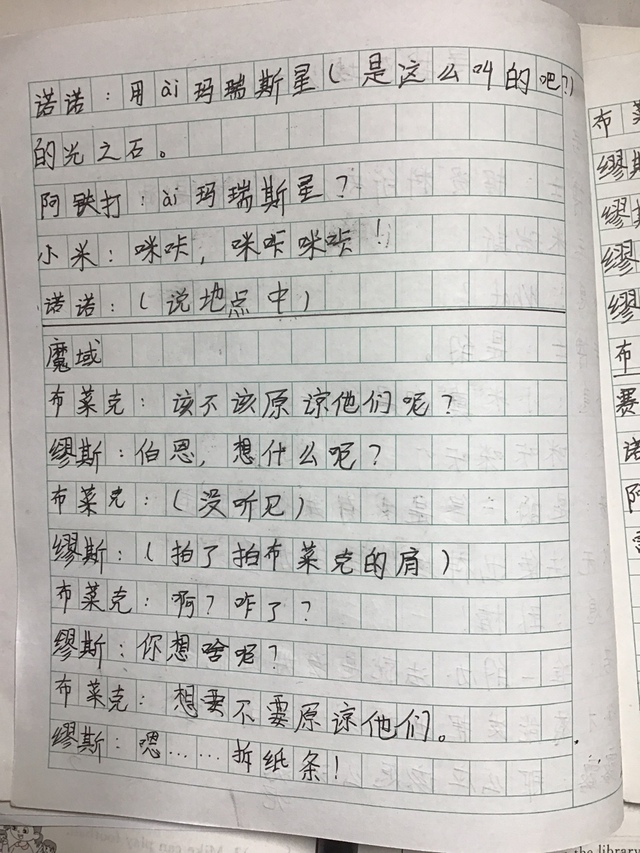 诺诺：用ài玛瑞斯星（是这么叫的吧？）
的光之石。
阿铁打：ài玛瑞斯星？
小米：咪咔，咪咔咪咔！
诺诺：（说地点中）
魔域
布莱克：该不该原谅他们呢？
缪斯：伯恩，想什么呢？
布莱克：（没听见）
缪斯：（拍了拍布莱克的肩）
布莱克：啊？咋了？
缪斯：你想啥呢？
布莱克：想要不要原谅他们。
缪斯：嗯……拆纸条！
布
缪斯
缪
缪
缪
布
赛
诺
阿
13. Mike can play
the library